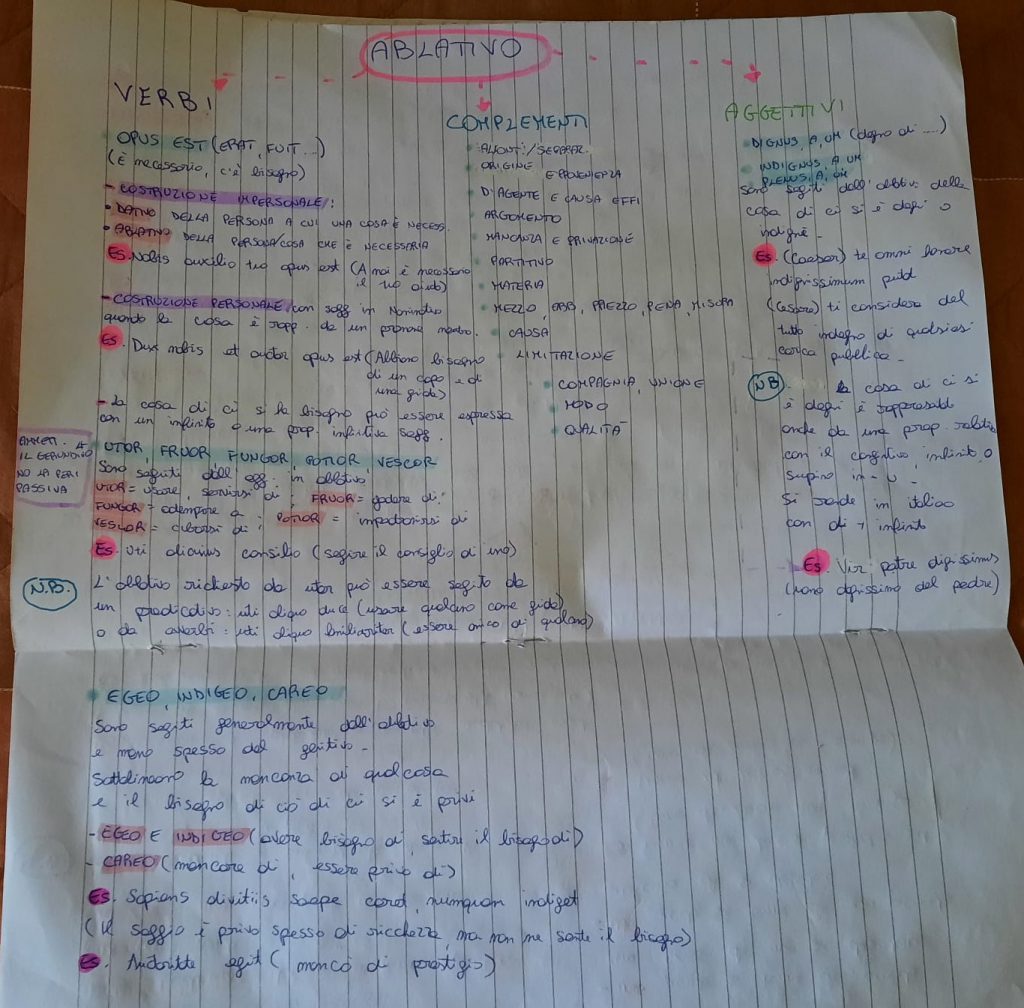 ABLATIVO
VERBI
OPUS EST (ERAT, FUIT...)
(È necessario, c'è bisogno)
- COSTRUZIONE IMPERSONALE/:
• DATIVO DELLA PERSONA A CUI UNA COSA È NECESS.
• ABLATIVO DELLA PERSONA/COSA CHE È NECESSARIA
Es. Nobis auxilio tuo opus est (A noi è necessario
il tuo aiuto)
- COSTRUZIONE PERSONALE/con sogg in Nominativo
quando la cosa è rapp. da un pronome neutro.
Es. Dux nobis et auctor opus est (Abbiamo bisogno
di un capo e di
una guida)
- La cosa di cui si ha bisogno può essere espressa
con un infinito o una prop. infinitiva sogg.
AMMETT. A
IL GERUNDIVO
NO LA PERI
PASSIVA
UTOR, FRUOR FUNGOR, POTIOR, VESCOR
Sono seguiti dall'ogg. in ablativo
UTOR = usare, servirsi di ; FRUOR = godere di;
FUNGOR = adempiere a ; POTIOR = impadronirsi di
VESCOR = cibarsi di;
Es. Uti alicuius consilio (seguire il consiglio di uno)
N.B. L'ablativo richiesto da utor può essere seguito da
un predicativo: uti aliquo duce (usare qualcuno come guida)
o da avverbi: uti aliquo familiariter (essere amico di qualcuno)
• EGEO, INDIGEO, CAREO
Sono seguiti generalmente dall'ablativo
e meno spesso dal genitivo -
Sottolineano la mancanza di qualcosa
e il bisogno di ciò di cui si è privi
- EGEO E INDIGEO (avere bisogno di, sentire il bisogno di)
- CAREO (mancare di, essere privo di)
Es. Sapiens divitiis saepe caret, numquam indiget
(Il saggio è privo spesso di ricchezza, ma non ne sente il bisogno)
Es. Auctoritate eguit (mancò di prestigio)
COMPLEMENTI
• ALLONT./SEPARAZ.
• ORIGINE E PROVENIENZA
• D'AGENTE E CAUSA EFFI
• ARGOMENTO
• MANCANZA E PRIVAZIONE
• PARTITIVO
• MATERIA
• MEZZO, ABB, PREZZO, PENA, MISURA
• CAUSA
• LIMITAZIONE
• COMPAGNIA, UNIONE
• MODO
• QUALITÀ
AGGETTIVI
• DIGNUS, A, UM (degno di ....)
• INDIGNUS, A, UM
PLENUS, A, UM
Sono seguiti dall'ablativo della
cosa di cui si è degni o
indegni -
Es. (Caesar) te omni honore
indignissimum putat
(Cesare) ti considera del
tutto indegno di qualsiasi
carica pubblica -
NB la cosa di cui si
è degni è rappresentata
anche da una prop. relativa
con il congiuntivo, infinito, o
supino in -u -
Si rende in italiano
con di + infinito
Es. Vir patre dignissimus
(uomo degnissimo del padre)